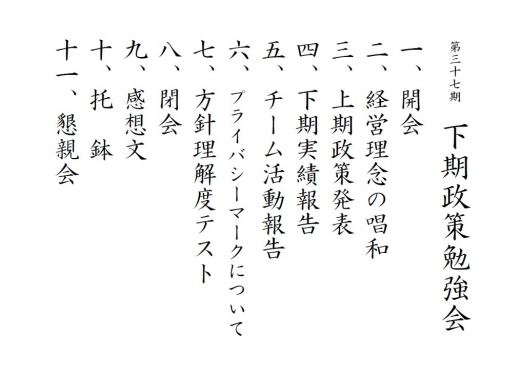 第三十七期
下期政策勉強会
一、開会
二、経営理念の唱和
三、上期政策発表
四、下期実績報告
五、チーム活動報告
六、プライバシーマークについて
七、方針理解度テスト
八、閉会
九、感想文
十、托　鉢
十一、懇親会